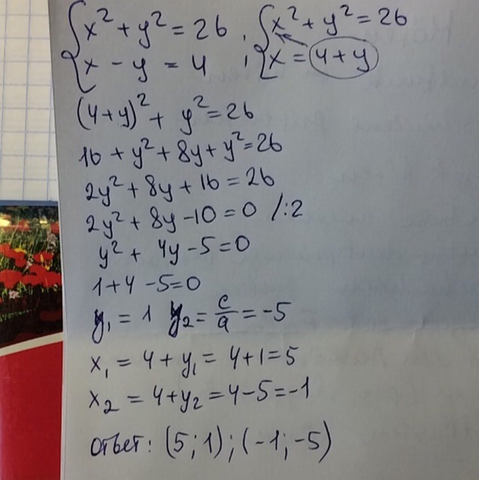 {x² + y² = 26 ; {x² + y² = 26
{x - y = 4 ; {x = 4 + y
(4+y)² + y² = 26
16 + y² + 8y + y² = 26
2y² + 8y + 16 = 26
2y² + 8y - 10 = 0 /:2
y² + 4y - 5 = 0
1 + 4 - 5 = 0
y₁ = 1 y₂ = c/a = -5
x₁ = 4 + y₁ = 4 + 1 = 5
x₂ = 4 + y₂ = 4 - 5 = -1
ответ: (5; 1); (-1; -5)